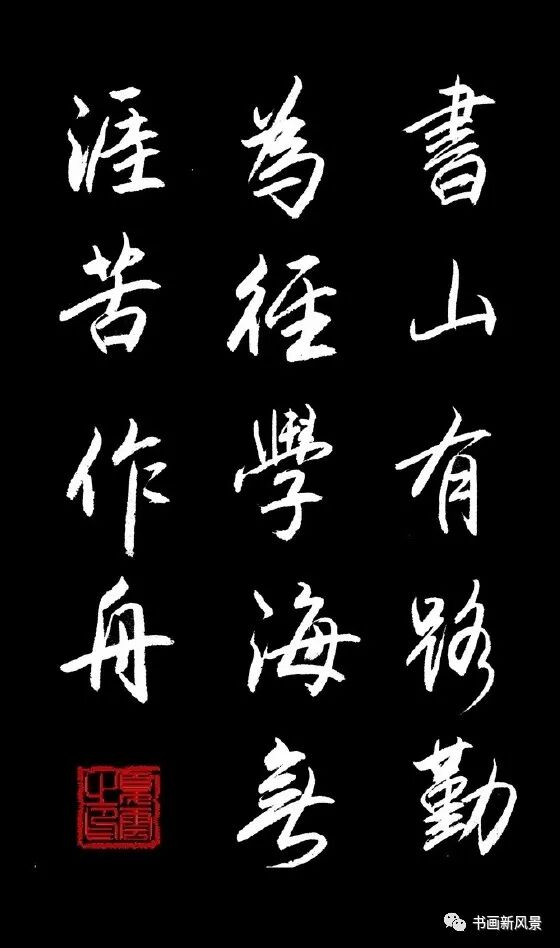 書山有路勤
為徑學海無
涯苦作舟
书画新风景